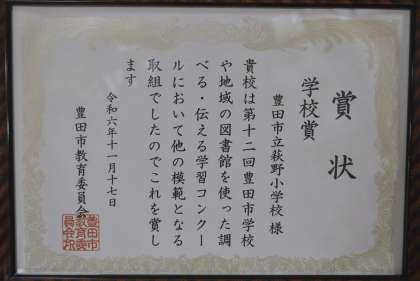 賞状
学校賞
豊田市立萩野小学校 様
貴校は第十二回豊田市学校
や地域の図書館を使った調
べる・伝える学習コンクー
ルにおいて他の模範となる
取組でしたのでこれを賞し
ます
令和六年十一月十七日
豊田市教育委員会
豊田市
教育委
員会印